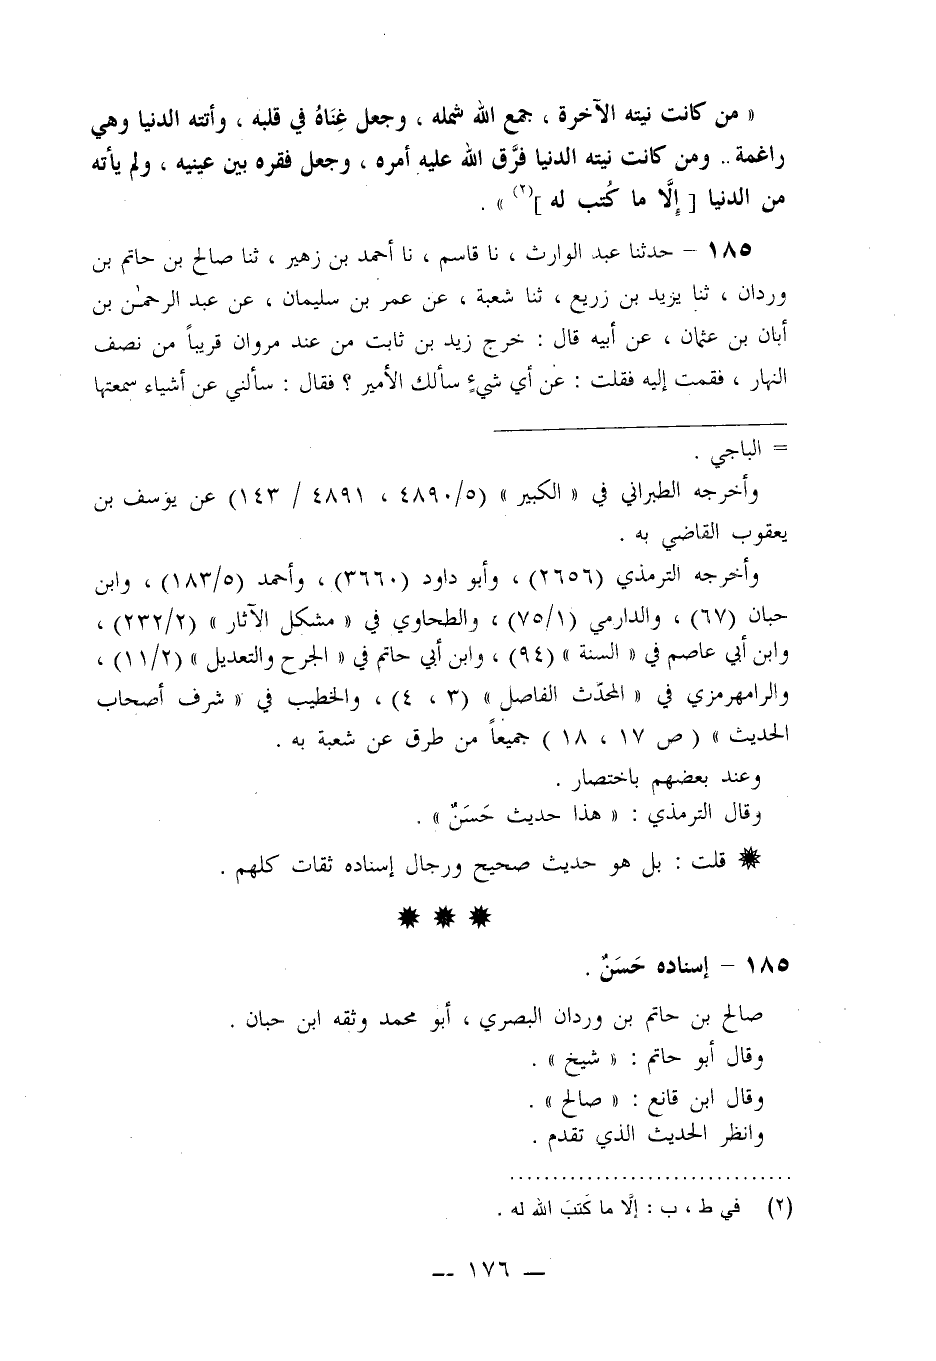 « من كانت نيته الآخرة ، جمع الله شمله ، وجعل غِنَاهُ في قلبه ، وأتته الدنيا وهي
راغمة .. ومن كانت نيته الدنيا فرَّق الله عليه أمره ، وجعل فقره بين عينيه ، ولم يأته
من الدنيا [ إِلَّا ما كُتب له ](٢) » .
١٨٥ – حدثنا عبد الوارث ، نا قاسم ، نا أحمد بن زهير ، ثنا صالح بن حاتم بن
وردان ، ثنا يزيد بن زريع ، ثنا شعبة ، عن عمر بن سليمان ، عن عبد الرحمٰن بن
أبان بن عثمان ، عن أبيه قال : خرج زيد بن ثابت من عند مروان قريباً من نصف
النهار ، فقمت إليه فقلت : عن أي شيءٍ سألك الأمير ؟ فقال : سألني عن أشياء سمعتها
= الباجي .
وأخرجه الطبراني في « الكبير » (٥/٤٨٩٠ ، ٤٨٩١ / ١٤٣) عن يوسف بن
يعقوب القاضي به .
وأخرجه الترمذي (٢٦٥٦) ، وأبو داود (٣٦٦٠) ، وأحمد (١٨٣/٥) ، وابن
حبان (٦٧) ، والدارمي (٧٥/١) ، والطحاوي في « مشكل الآثار » (٢٣٢/٢) ،
وابن أبي عاصم في « السنة » (٩٤) ، وابن أبي حاتم في « الجرح والتعديل » (١١/٢) ،
والرامهرمزي في « المحدّث الفاصل » (٣ ، ٤) ، والخطيب في « شرف أصحاب
الحديث » ( ص ١٧ ، ١٨ ) جميعاً من طرق عن شعبة به .
وعند بعضهم باختصار .
وقال الترمذي : « هذا حديث حَسَنٌ » .
قلت : بل هو حديث صحيح ورجال إسناده ثقات كلهم .
١٨٥ – إسناده حَسَنٌ .
صالح بن حاتم بن وردان البصري ، أبو محمد وثقه ابن حبان .
وقال أبو حاتم : « شيخ » .
وقال ابن قانع : « صالح » .
وانظر الحديث الذي تقدم .
(٢) في ط ، ب : إلَّا ما كَتبَ الله له .
— ١٧٦ —